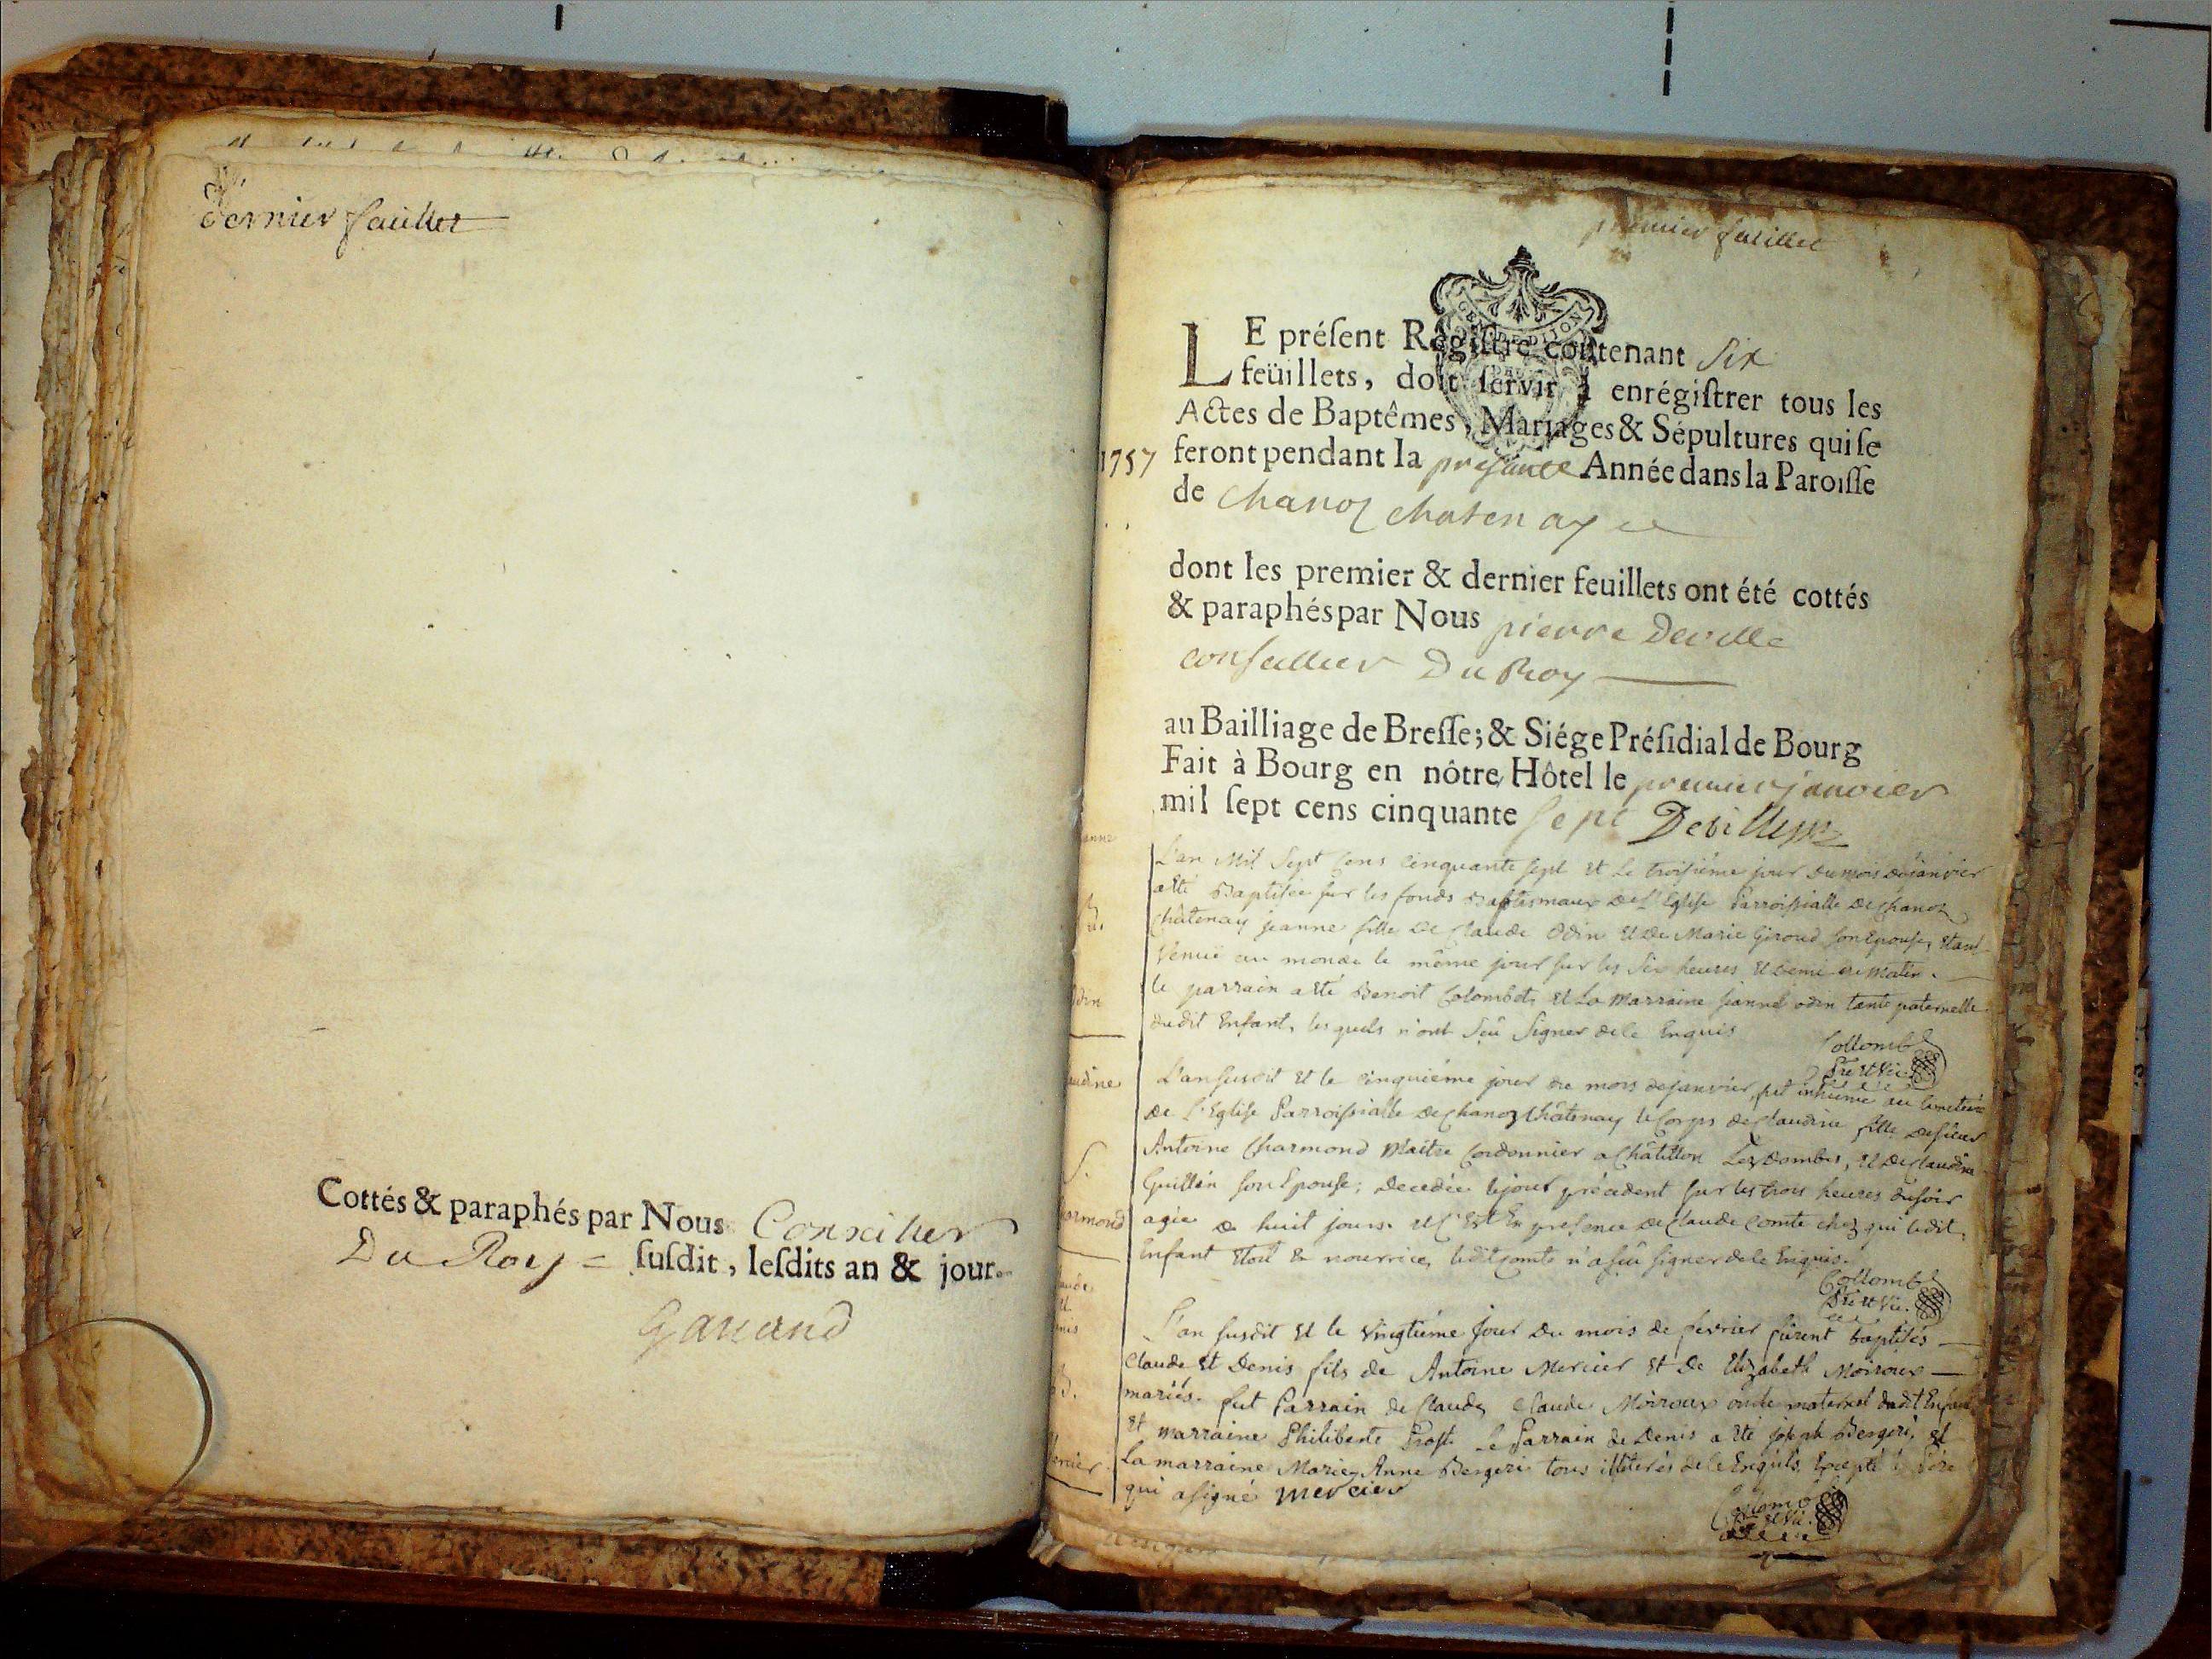 Dernier faüillet
Cottés & paraphés par Nous Conseiller
Du Roy = ſuſdit, leſdits an & jour.
premier faüillet
LE préſent Régiſtre contenant Six
feüillets, doit ſervir à enrégiſtrer tous les
Actes de Baptêmes, Mariages & Sépultures qui ſe
1757 feront pendant la presante Année dans la Paroiſſe
de Chanoz chatenay
dont les premier & dernier feuillets ont été cottés
& paraphés par Nous pierre Deville
conseiller Du Roy
au Bailliage de Breſſe; & Siége Préſidial de Bourg
Fait à Bourg en nôtre Hôtel le premier janvier
mil ſept cens cinquante sept Deville
L'an Mil Sept Cens Cinquante Sept et Le troisiéme jour du mois de janvier
a eté Baptisée sur les fonds Baptismaux de L'Eglise Parroissialle de Chanoz
Châtenay jeanne fille de Claude Odin et De Marie Giroud son Epouse, etant
Venuë au monde le même jour sur les Six heures et demi du matin.
le parrain a eté Benoit Colombet, et La Marraine jeanne odin tante paternelle
dudit Enfant, lesquels n'ont Sçû Signer de ce Enquis
Collomb
Ptre et Vic.
L'an susdit et le cinquiéme jour du mois de janvier, fut inhumé au Cimetiere
de L'Eglise Parroissialle de Chanoz Châtenay le Corps de Claudine fille de sieur
Antoine Charmond Maitre Cordonnier a Châtillon Lez Dombes, et de Claudine
Guillin son Epouse; Decedée le jour précedent sur les trois heures du soir
agée de huit jours. et C'est En presence de Claude Comte chez qui ledit
Enfant etoit en nourrice, ledit Comte n'a sçû signer de ce Enquis.
Collomb
Ptre et Vic.
L'an susdit et le vingtiéme jour du mois de fevrier furent baptisés
Claude et Denis fils de Antoine Mercier et de Elizabeth Moiroux
mariés. fut Parrain de Claude, Claude Moiroux oncle maternel dudit Enfant
et marraine Philiberte Prost. Le Parrain de Denis a eté joseph Bergeri, et
la marraine Marie Anne Bergeri tous illiterés de ce Enquis, Excepté le Pére
qui a signé mercier
Collomb
Ptre et Vic.